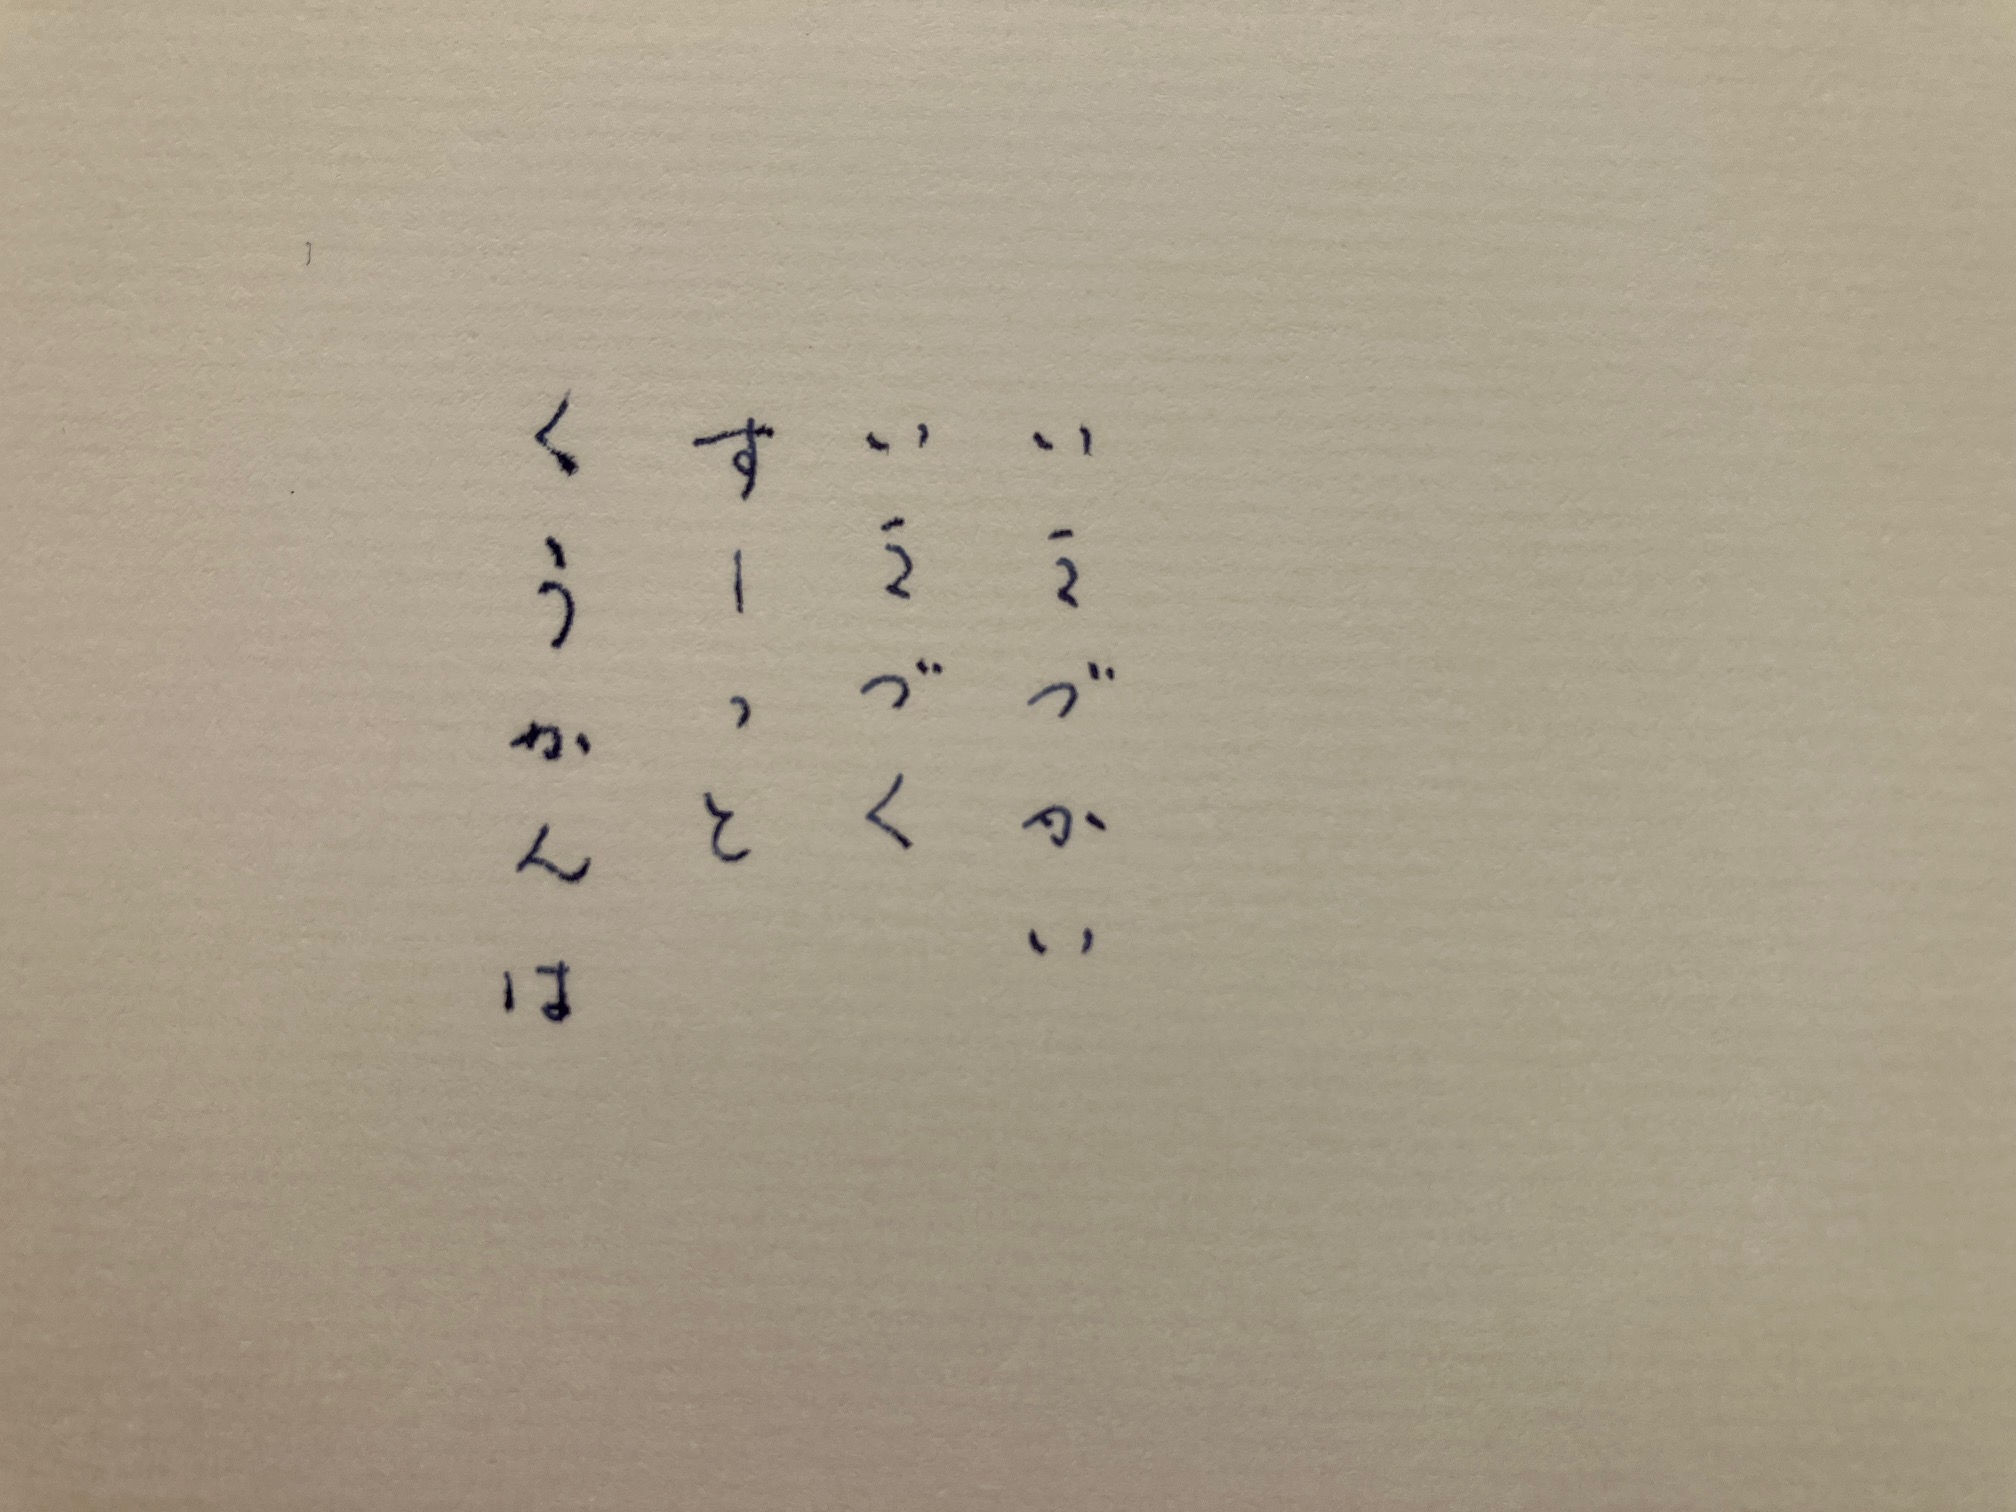 いえづかい
いえづく
すーっと
くうかんは